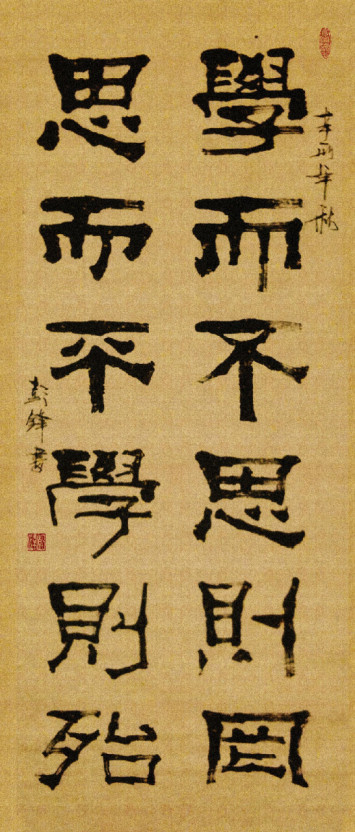 辛卯年秋
學而不思則罔
思而平學則殆
彭鋒書